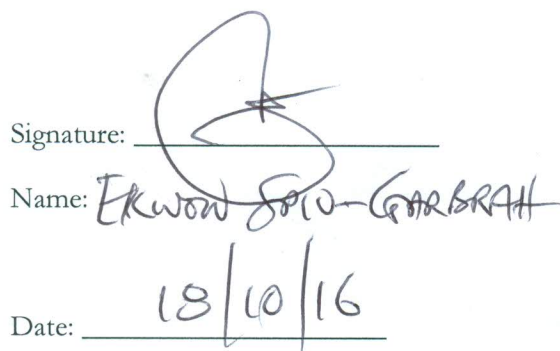 Signature:
Name: EKWOW SPIO-GARBRAH
Date: 18/10/16